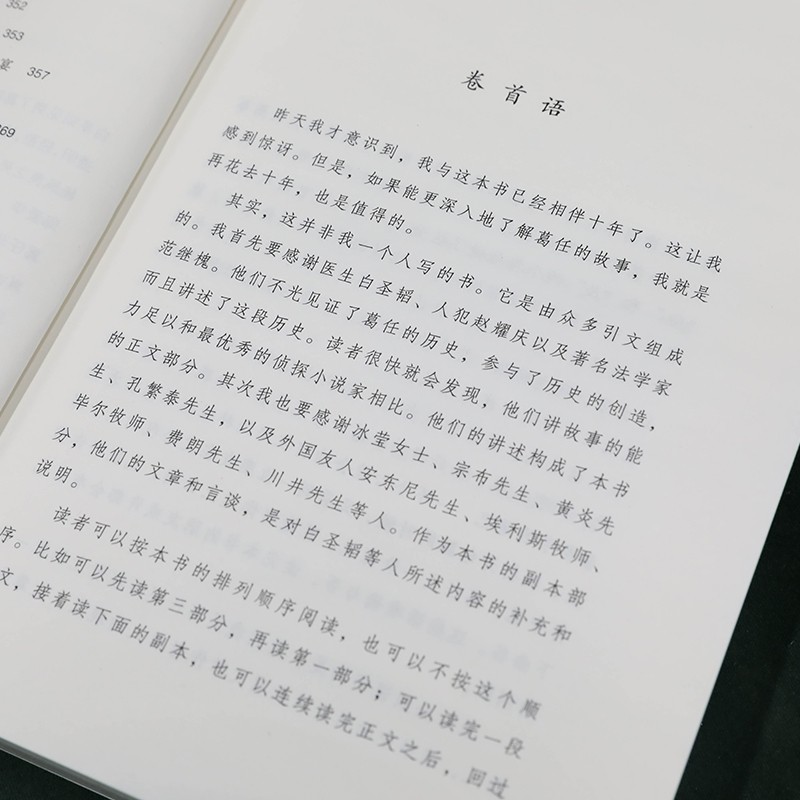 352
353
宴 357
369
卷首语
昨天我才意识到，我与这本书已经相伴十年了。这让我
感到惊讶。但是，如果能更深入地了解葛任的故事，我就是
再花去十年，也是值得的。
其实，这并非我一个人写的书。它是由众多引文组成
的。我首先要感谢医生白圣韬、人犯赵耀庆以及著名法学家
范继槐。他们不光见证了葛任的历史，参与了历史的创造，
而且讲述了这段历史。读者很快就会发现，他们讲故事的能
力足以和最优秀的侦探小说家相比。他们的讲述构成了本书
的正文部分。其次我也要感谢冰莹女士、宗布先生、黄炎先
生、孔繁泰先生，以及外国友人安东尼先生、埃利斯牧师、
毕尔牧师、费朗先生、川井先生等人。作为本书的副本部
分，他们的文章和言谈，是对白圣韬等人所述内容的补充和
说明。
读者可以按本书的排列顺序阅读，也可以不按这个顺
序。比如可以先读第三部分，再读第一部分；可以读完一段
文，接着读下面的副本，也可以连续读完正文之后，回过